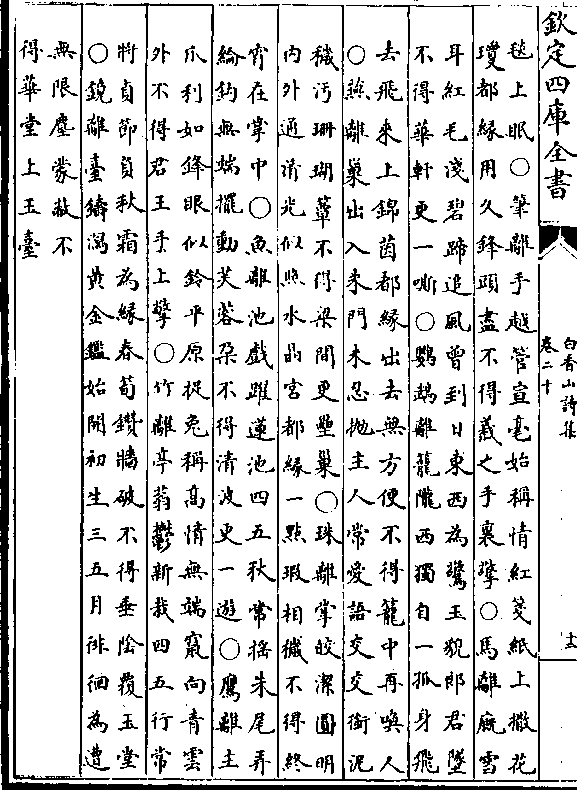 欽定四庫全書
白香山詩集
卷二十
毯上眠○筆離手越管宣毫始稱情紅箋紙上撒花
瓊都緣用久鋒頭盡不得羲之手裏擎○馬離廐雪
耳紅毛淺碧蹄追風曾到日東西為驚玉貌郎君墜
不得華軒更一嘶○鸚鵡離籠隴西獨自一孤身飛
去飛來上錦茵都緣出去無方便不得籠中再喚人
○燕離巢出入朱門未忍拋主人常愛語交交銜泥
穢汚珊瑚簟不得梁間更壘巢○珠離掌皎潔圓明
內外通清光似照水晶宮都緣一點瑕相穢不得終
宵在掌中○魚離池戲躍蓮池四五秋常揺朱尾弄
綸鈎無端擺動芙蓉朶不得清波更一遊○鷹離主
爪利如鋒眼似鈴平原捉兔稱高情無端竄向青雲
外不得君王手上擎○竹離亭蓊鬱新栽四五行常
將貞節負秋霜為緣春筍鑽牆破不得垂陰覆玉堂
○鏡離臺鑄瀉黃金鑑始開初生三五月徘徊為遭
無限塵蒙蔽不
得華堂上玉臺